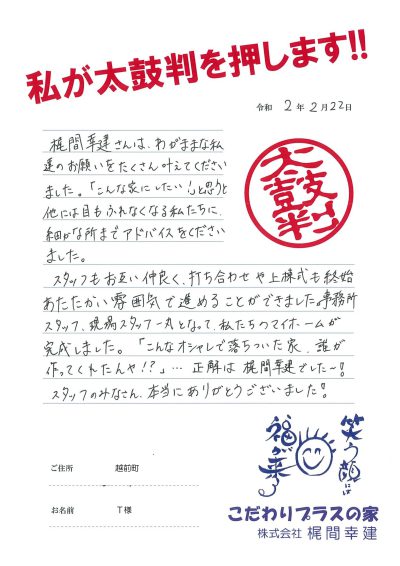 私が太鼓判を押します!!
令和 2年 2月22日
梶間幸建さんは、わがままな私
達のお願いをたくさん叶えてください
ました。「こんな家にしたい!」と思うと
他には目もふれなくなる私たちに、
細かな所までアドバイスをください
ました。
太鼓判
スタッフもお互い仲良く、打ち合わせや上棟式も終始
あたたかい雰囲気で進めることができました。事務所
スタッフ、現場スタッフ一丸となって、私たちのマイホームが
完成しました。「こんなオシャレで落ちついた家、誰が
作ってくれたんや!?」… 正解は梶間幸建でした〜!
スタッフのみなさん、本当にありがとうございました!
笑う顔には
福が来る
ご住所 越前町
お名前 T様
こだわりプラスの家
株式会社 梶間幸建